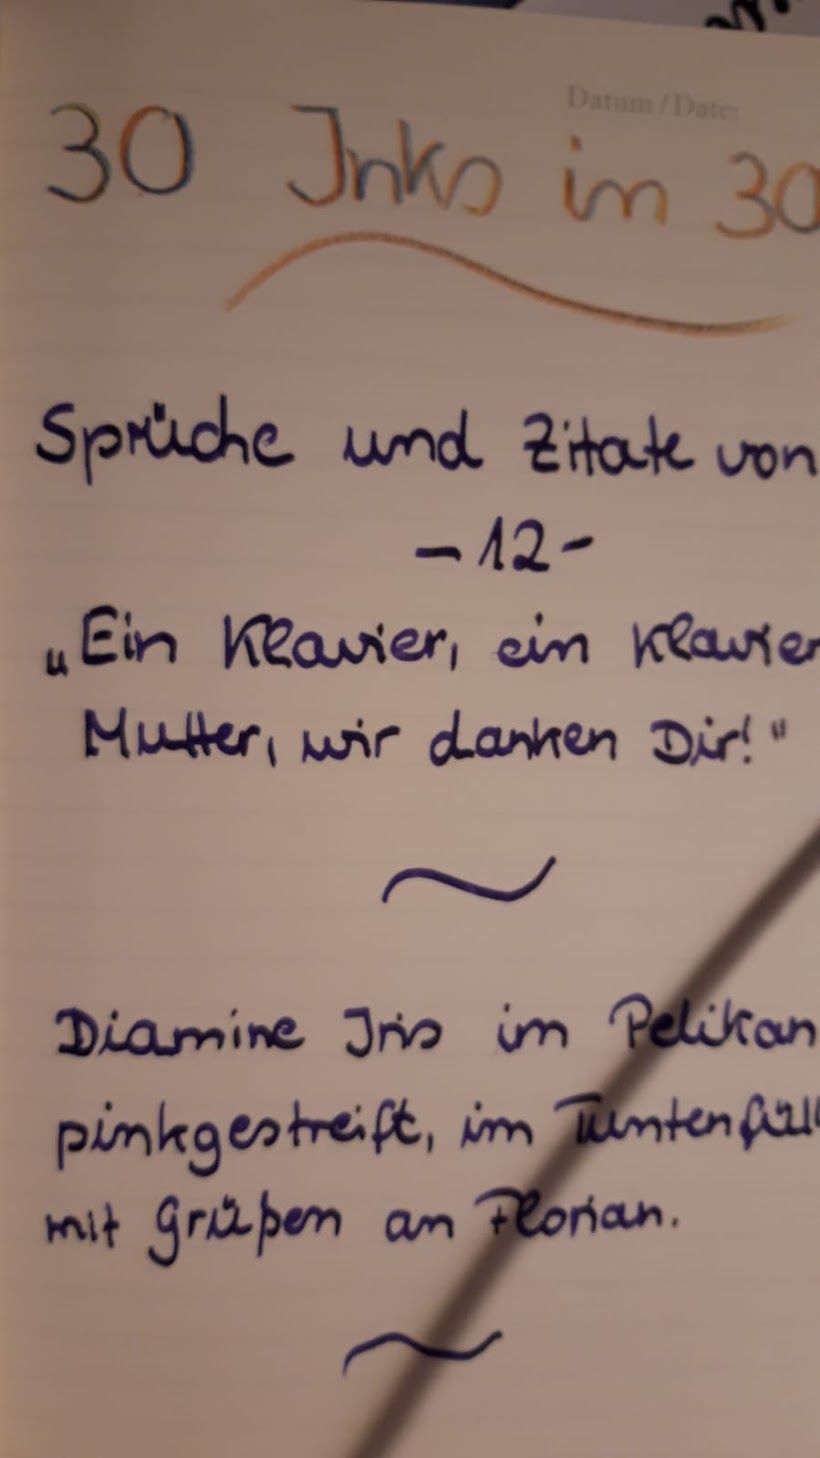 Datum / Date:
30 Inks in 30
Sprüche und Zitate von
-12-
„Ein Klavier, ein Klavier
Mutter, wir danken Dir!"
Diamine Iris im Pelikan
pinkgestreift, im Tuntenfüll
mit Grüßen an Florian.